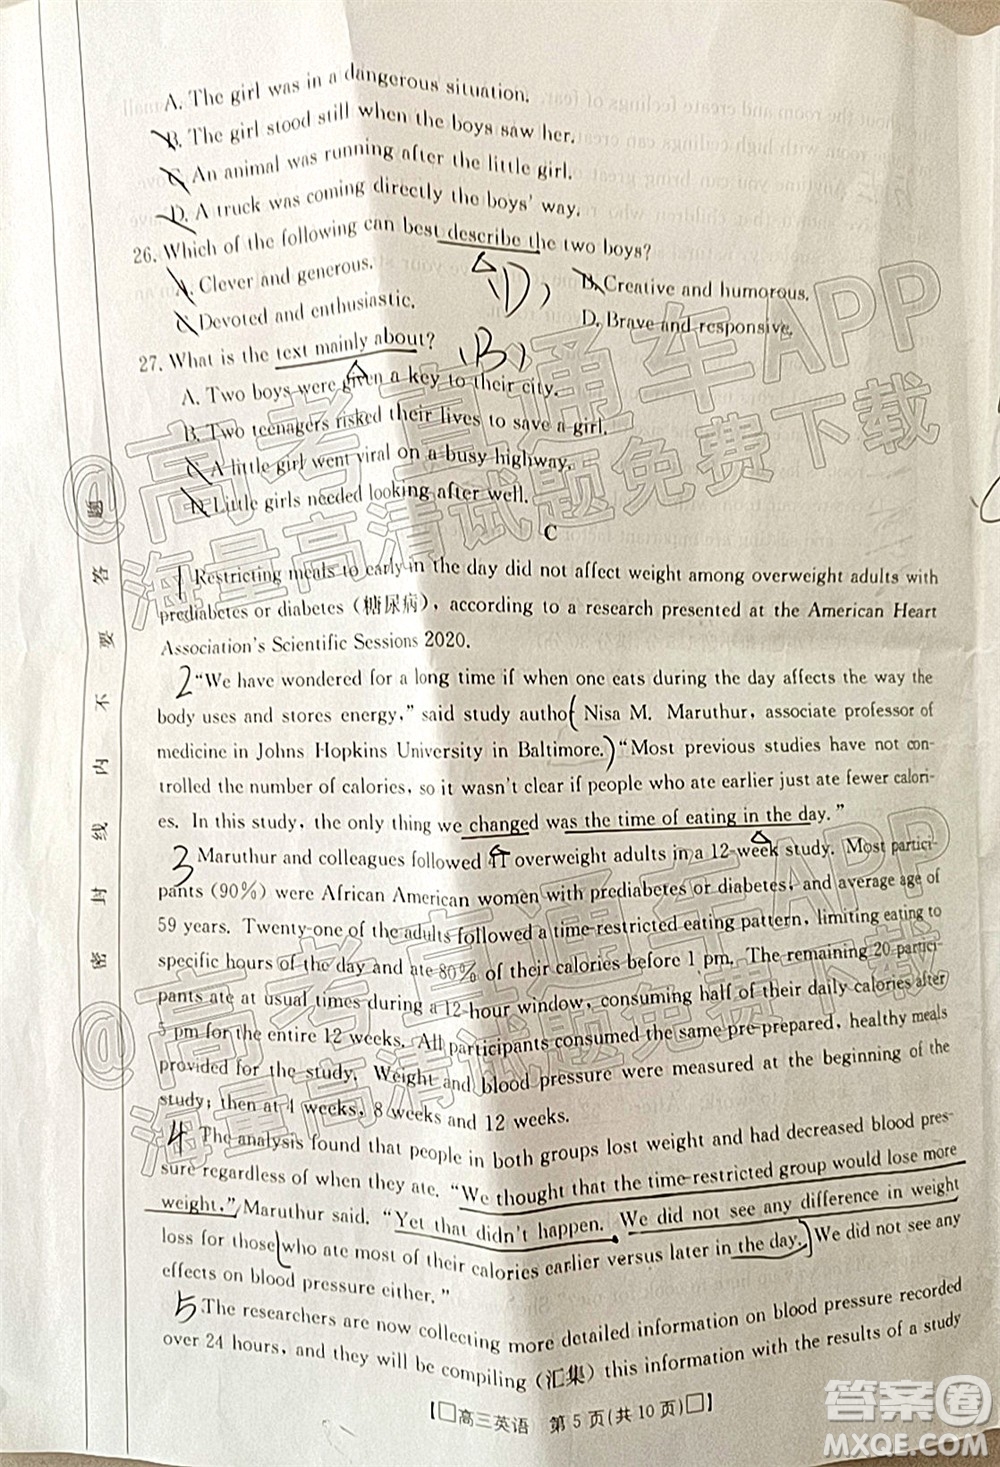 A. The girl was in a dangerous situation.
B. The girl stood still when the boys saw her.
C. An animal was running after the little girl.
D. A truck was coming directly the boys' way.
26. Which of the following can best describe the two boys?
A. Clever and generous.
B. Creative and humorous.
C. Devoted and enthusiastic.
D. Brave and responsive.
(D)
27. What is the text mainly about?
(B)
A. Two boys were given a key to their city.
B. Two teenagers risked their lives to save a girl.
C. A little girl went viral on a busy highway.
D. Little girls needed looking after well.
C
1 Restricting meals to early in the day did not affect weight among overweight adults with
prediabetes or diabetes (糖尿病), according to a research presented at the American Heart
Association's Scientific Sessions 2020.
2 "We have wondered for a long time if when one eats during the day affects the way the
body uses and stores energy," said study author Nisa M. Maruthur, associate professor of
medicine in Johns Hopkins University in Baltimore. "Most previous studies have not con-
trolled the number of calories, so it wasn't clear if people who ate earlier just ate fewer calori-
es. In this study, the only thing we changed was the time of eating in the day."
3 Maruthur and colleagues followed 41 overweight adults in a 12-week study. Most partici-
pants (90%) were African American women with prediabetes or diabetes, and average age of
59 years. Twenty-one of the adults followed a time-restricted eating pattern, limiting eating to
specific hours of the day and ate 80% of their calories before 1 pm. The remaining 20 partici-
pants ate at usual times during a 12-hour window, consuming half of their daily calories after
5 pm for the entire 12 weeks. All participants consumed the same pre-prepared, healthy meals
provided for the study. Weight and blood pressure were measured at the beginning of the
study; then at 4 weeks, 8 weeks and 12 weeks.
4 The analysis found that people in both groups lost weight and had decreased blood pres-
sure regardless of when they ate. "We thought that the time-restricted group would lose more
weight," Maruthur said. "Yet that didn't happen. We did not see any difference in weight
loss for those who ate most of their calories earlier versus later in the day. We did not see any
effects on blood pressure either."
5 The researchers are now collecting more detailed information on blood pressure recorded
over 24 hours, and they will be compiling (汇集) this information with the results of a study
【□高三英语 第 5 页(共 10 页)□】
密 封 线 内 不 要 答 题
@高考直通车APP
海量高清试题免费下载
@高考直通车APP
海量高清试题免费下载
答案圈
MXQE.COM